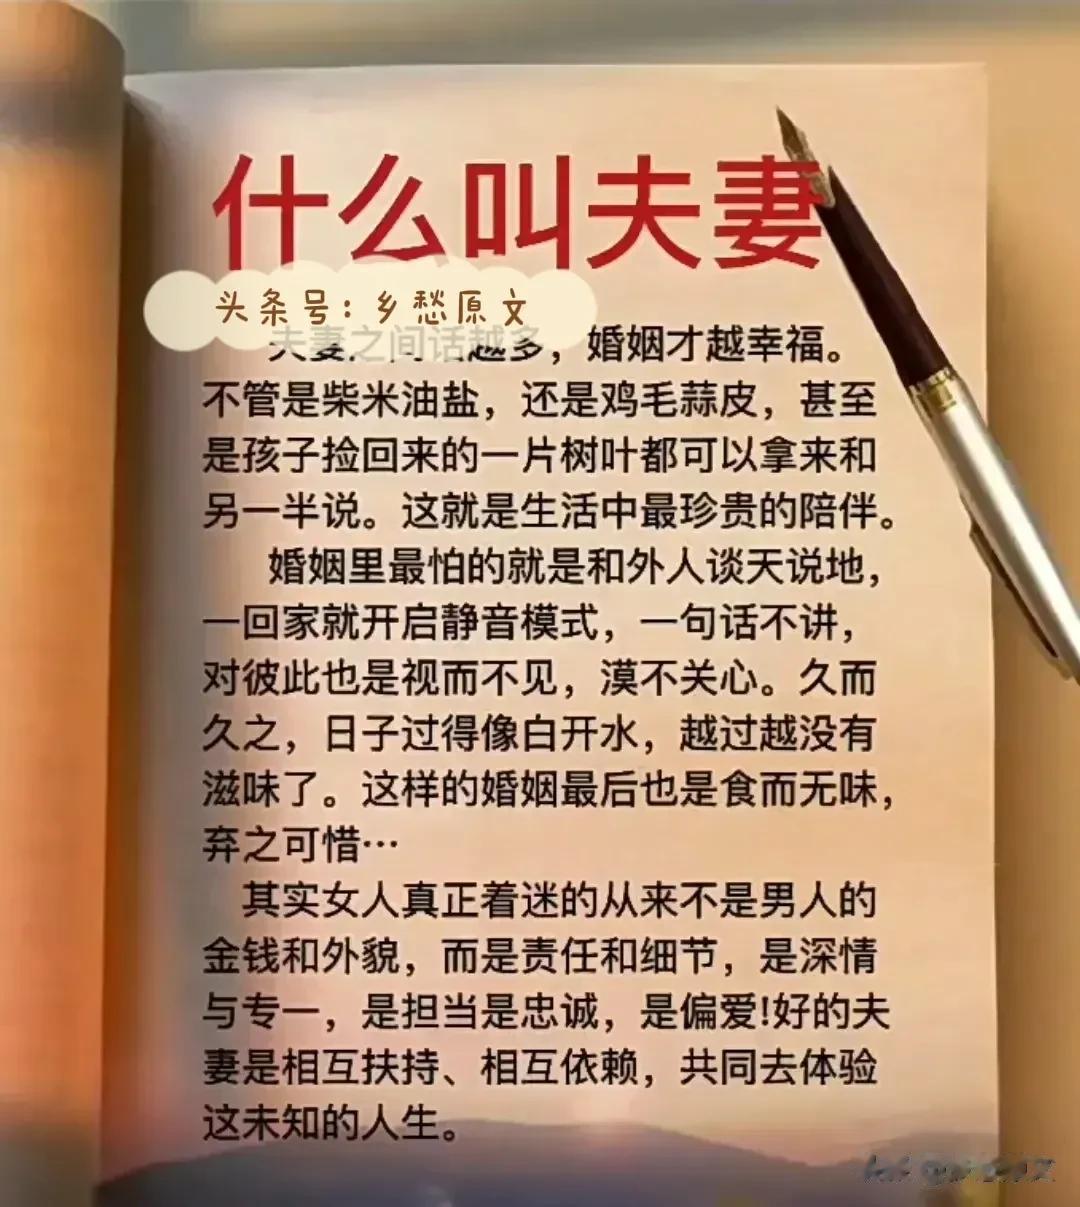 什么叫夫妻
头条号:乡愁原文
夫妻之间话越多，婚姻才越幸福。
不管是柴米油盐，还是鸡毛蒜皮，甚至
是孩子捡回来的一片树叶都可以拿来和
另一半说。这就是生活中最珍贵的陪伴。
婚姻里最怕的就是和外人谈天说地，
一回家就开启静音模式，一句话不讲，
对彼此也是视而不见，漠不关心。久而
久之，日子过得像白开水，越过越没有
滋味了。这样的婚姻最后也是食而无味，
弃之可惜…
其实女人真正着迷的从来不是男人的
金钱和外貌，而是责任和细节，是深情
与专一，是担当是忠诚，是偏爱!好的夫
妻是相互扶持、相互依赖，共同去体验
这未知的人生。